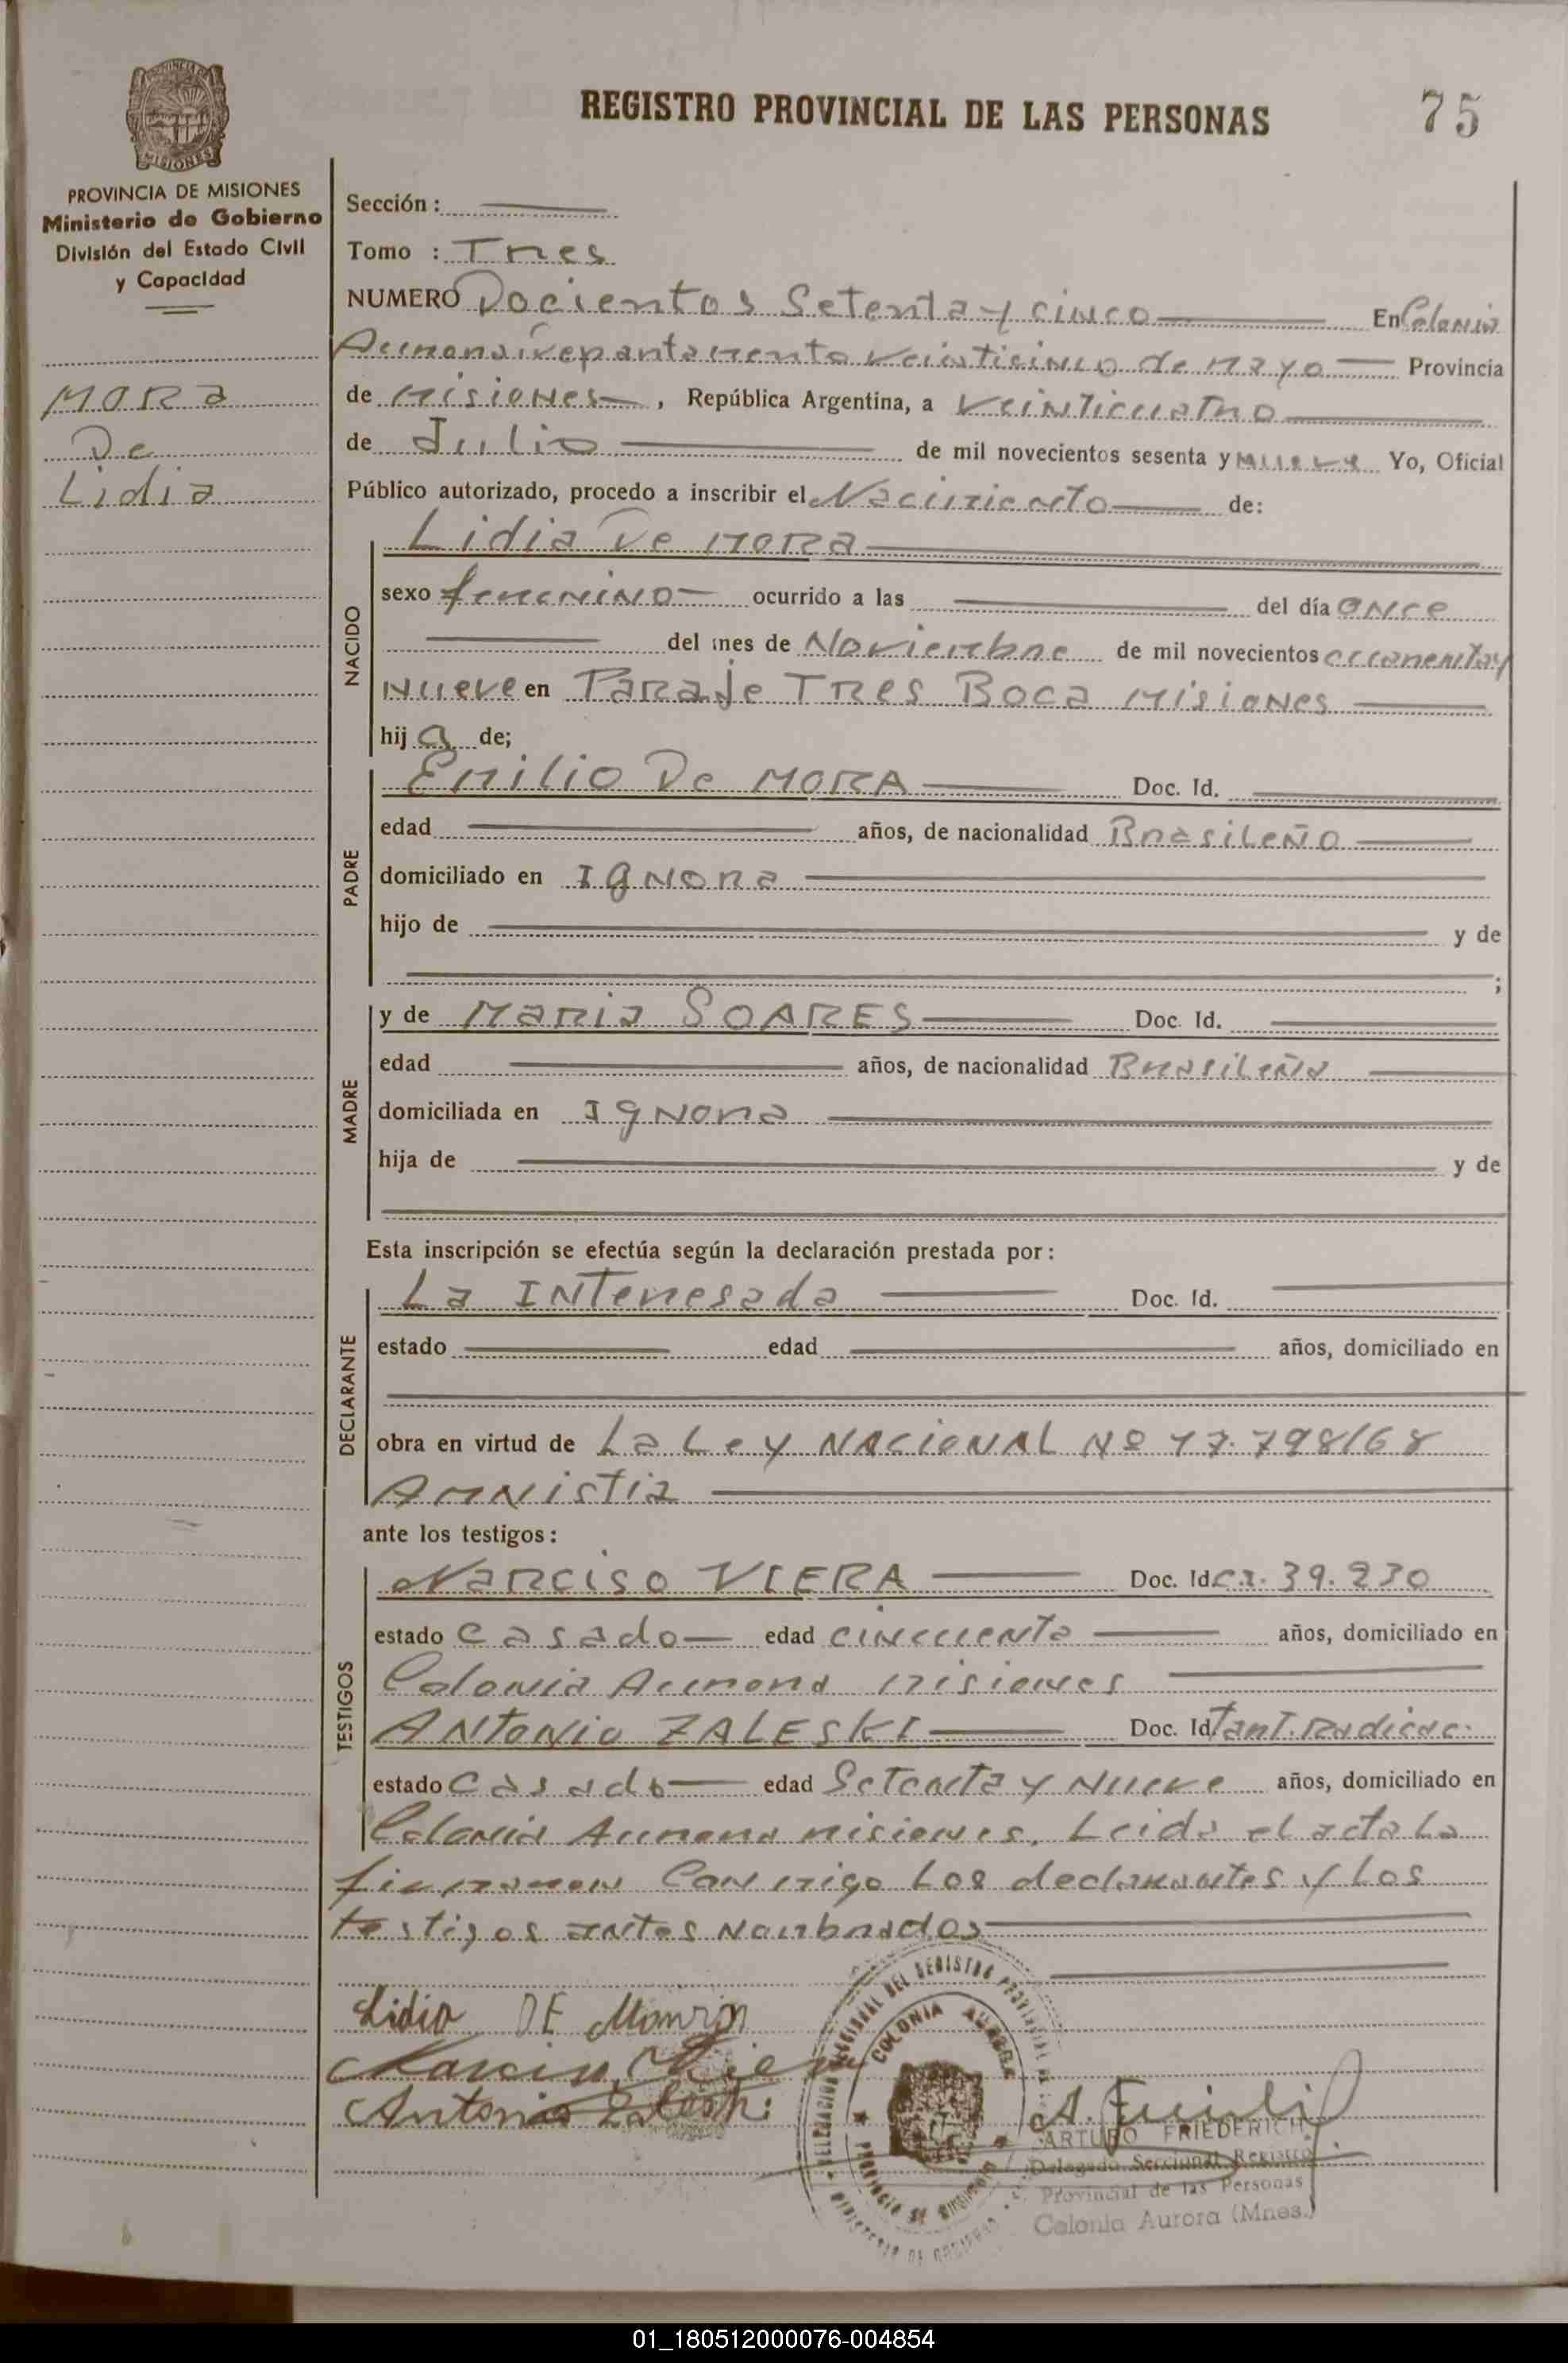 REGISTRO PROVINCIAL DE LAS PERSONAS
75
MISIONES
PROVINCIA DE MISIONES
Ministerio de Gobierno
División del Estado Civil
y Capacidad
MORA
De
Lidia
Sección :
Tomo : Tres
NUMERO Docientos Setenta y cinco En Colonia
Aurora Departamento Veinticinco de Mayo Provincia
de Misiones , República Argentina, a Veinticuatro
de Julio de mil novecientos sesenta y nueve Yo, Oficial
Público autorizado, procedo a inscribir el Nacimiento de:
NACIDO
Lidia De MORA
sexo femenino ocurrido a las del día once
del mes de Noviembre de mil novecientos cuarenta y
nueve en Paraje TRes Boca Misiones
hij a de;
PADRE
Emilio De MORA Doc. Id.
edad años, de nacionalidad Brasileño
domiciliado en Ignora
hijo de y de
;
MADRE
y de Maria SOARES Doc. Id.
edad años, de nacionalidad Brasileña
domiciliada en Ignora
hija de y de
Esta inscripción se efectúa según la declaración prestada por :
DECLARANTE
La Interesada Doc. Id.
estado edad años, domiciliado en
obra en virtud de La Ley NACIONAL Nº 17.798/68
Amnistia
ante los testigos :
TESTIGOS
Narciso VIERA Doc. Id C.I. 39.230
estado Casado edad cincuenta años, domiciliado en
Colonia Aurora Misiones
Antonio ZALESKI Doc. Id Tant. Radicac.
estado Casado edad Setenta y Nueve años, domiciliado en
Colonia Aurora Misiones. Leida el acta La
firmaron Con migo Los declarantes y Los
testigos antes nombrados
Lidia DE
Antonio
DELEGACION SECCIONAL DEL REGISTRO PROVINCIAL DE
COLONIA AURORA
PROVINCIA DE MISIONES
MINISTERIO DE GOBIERNO
ARTURO FRIEDERICH
Delegado Seccional Registro
Provincial de las Personas
Colonia Aurora (Mnes.)
01_180512000076-004854